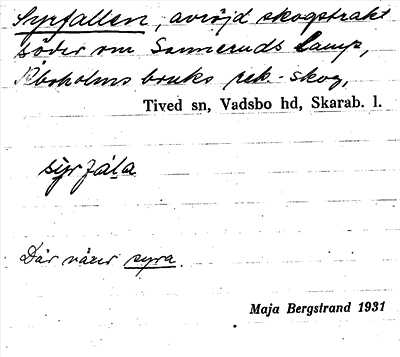 Syrfallen, avröjd skogstrakt
söder om Sanneruds Camp,
bruks rek.-skog,
Tived sn, Vadsbo hd, Skarab. l.
syrfala
Där växer syra.
Maja Bergstrand 1931